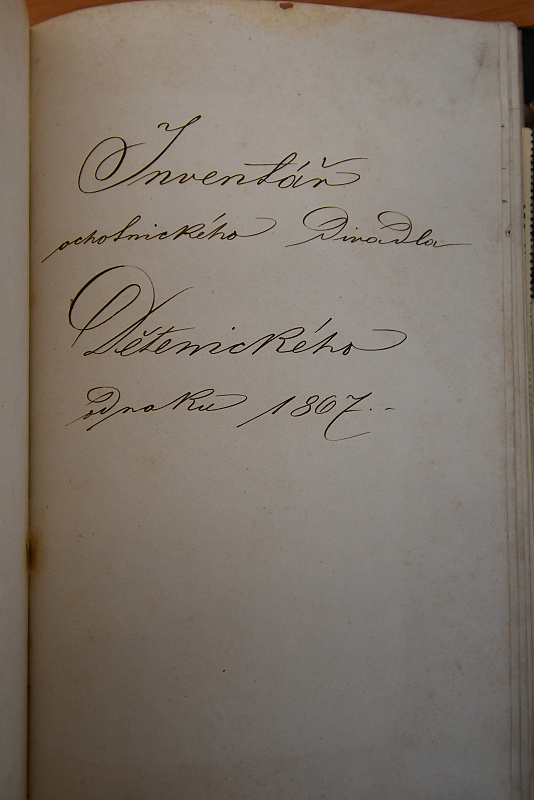 Inventář
ochotnického Divadla
Dětenického
od roku 1867.